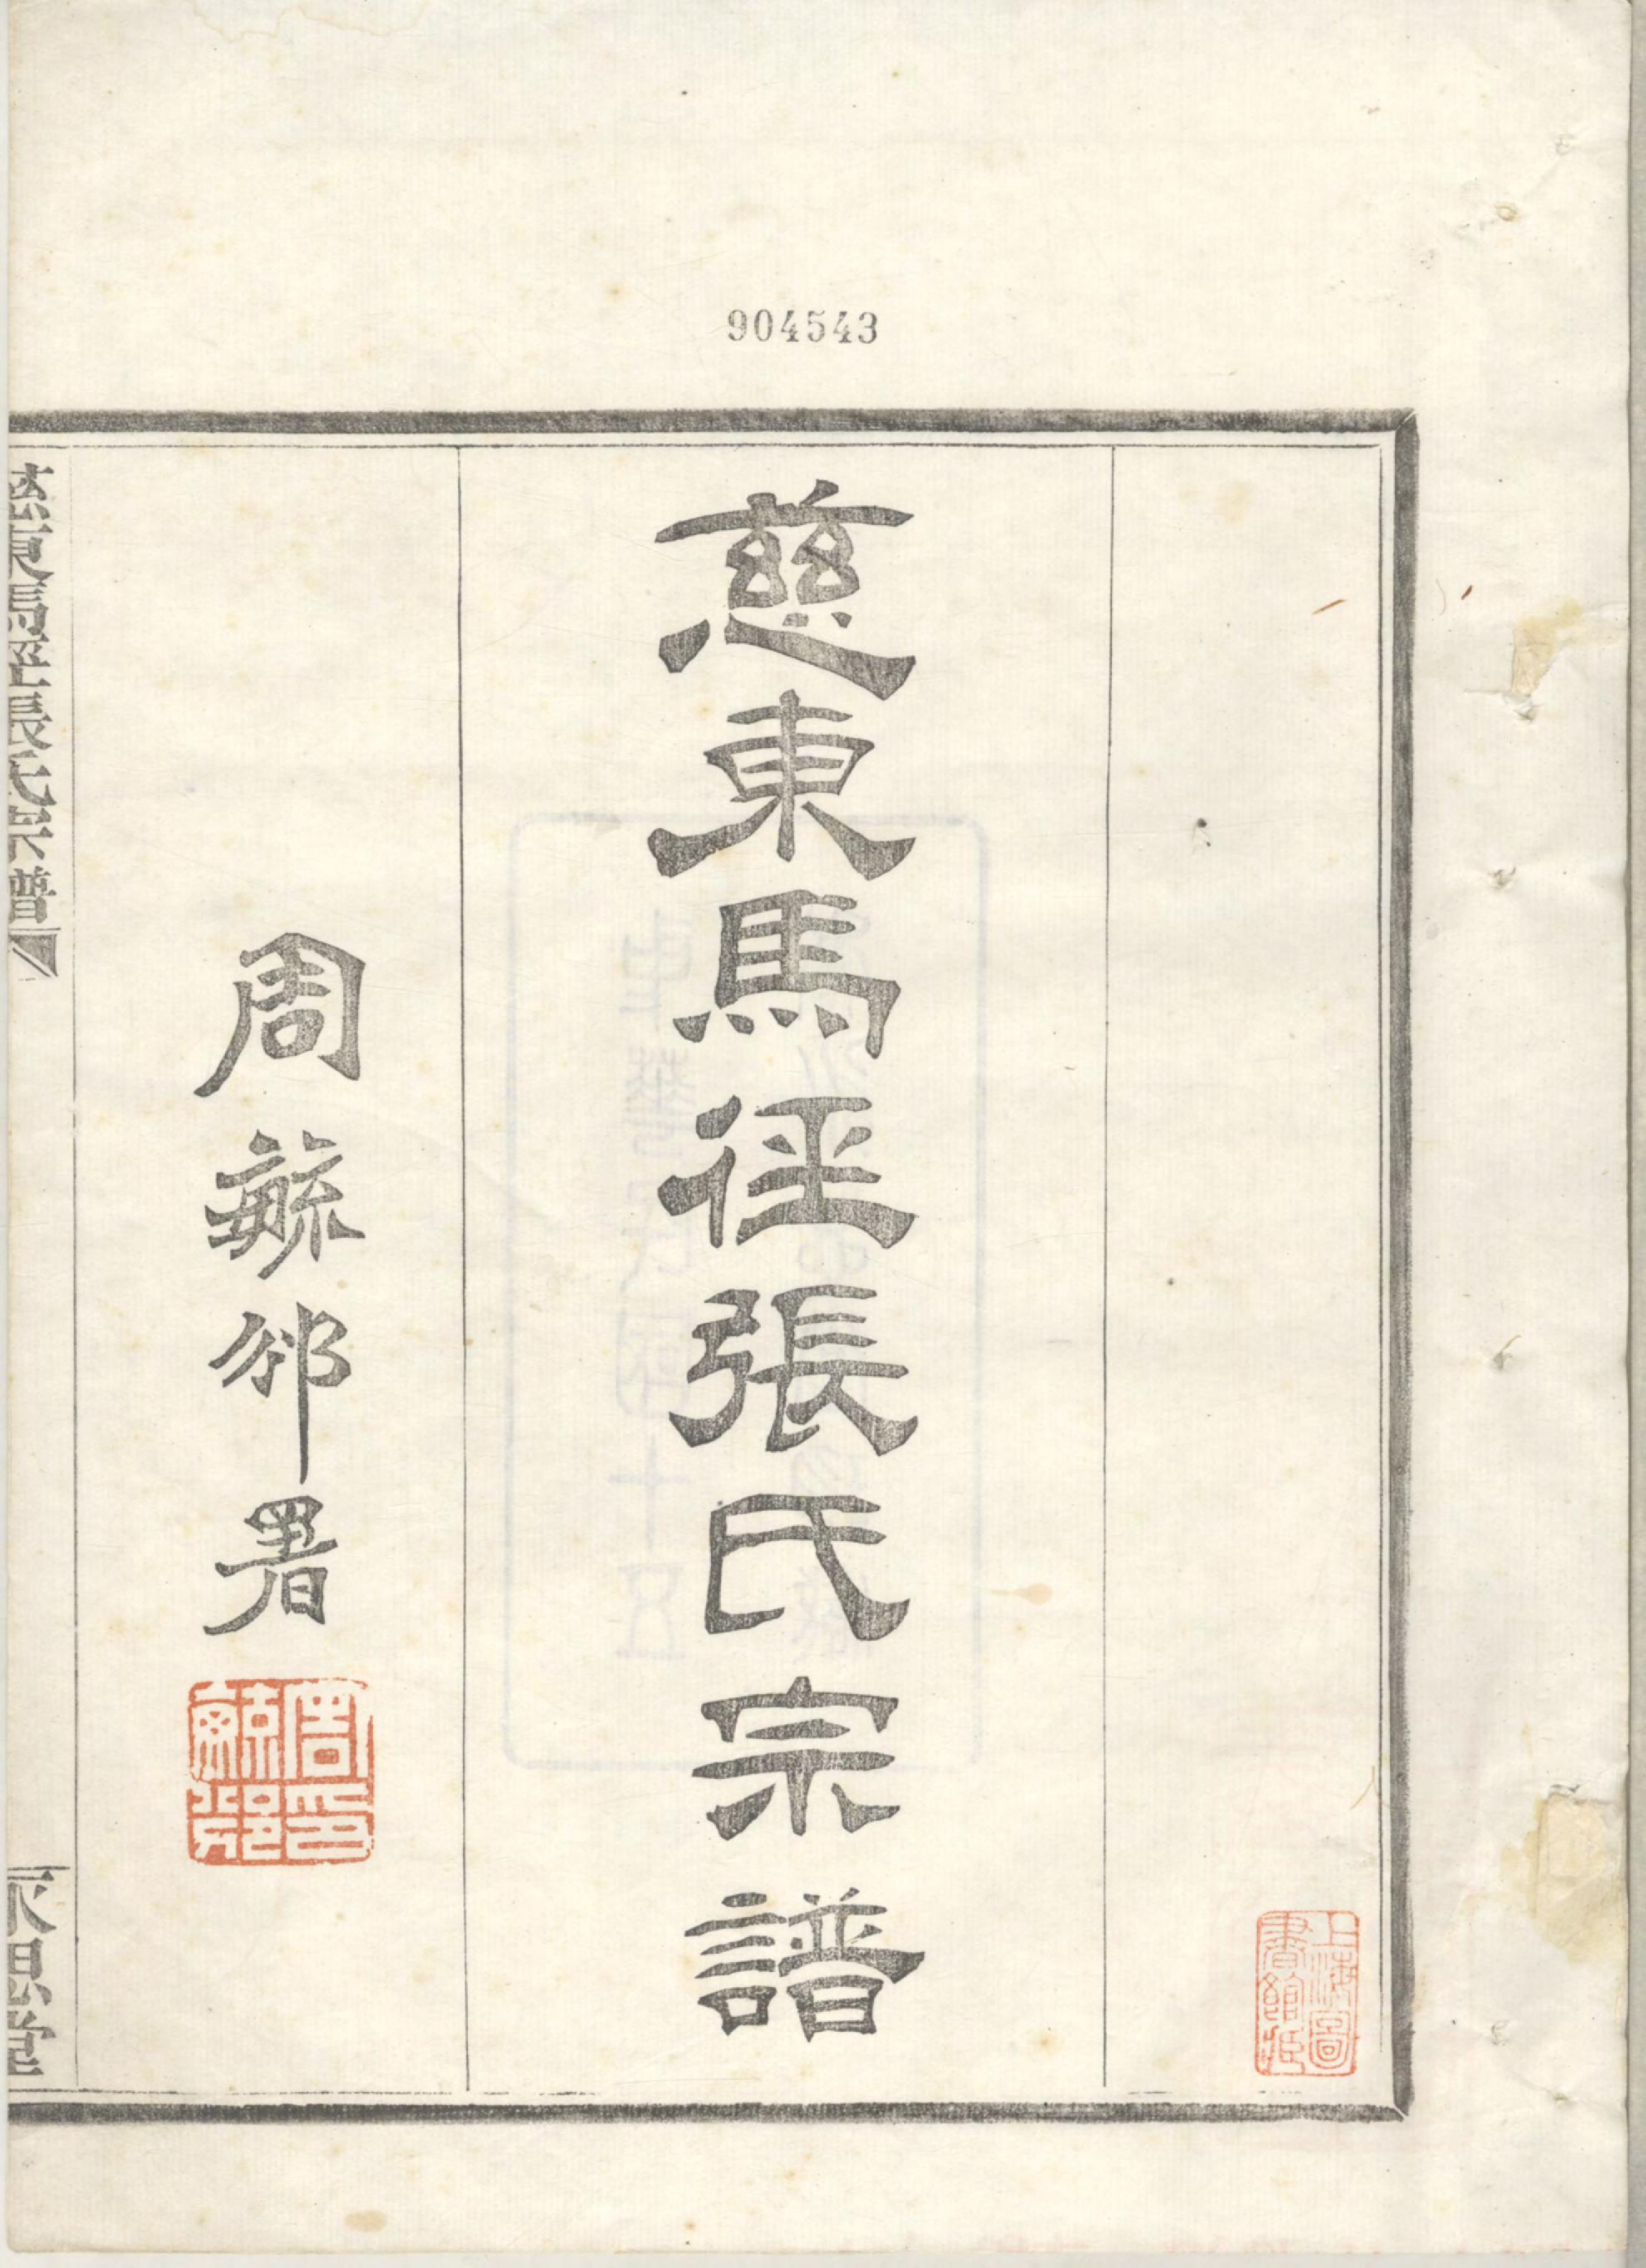 904543
慈東馬徑張氏宗譜
周毓邠署
上海圖
書館臧
慈東馬徑張氏宗譜
永思堂